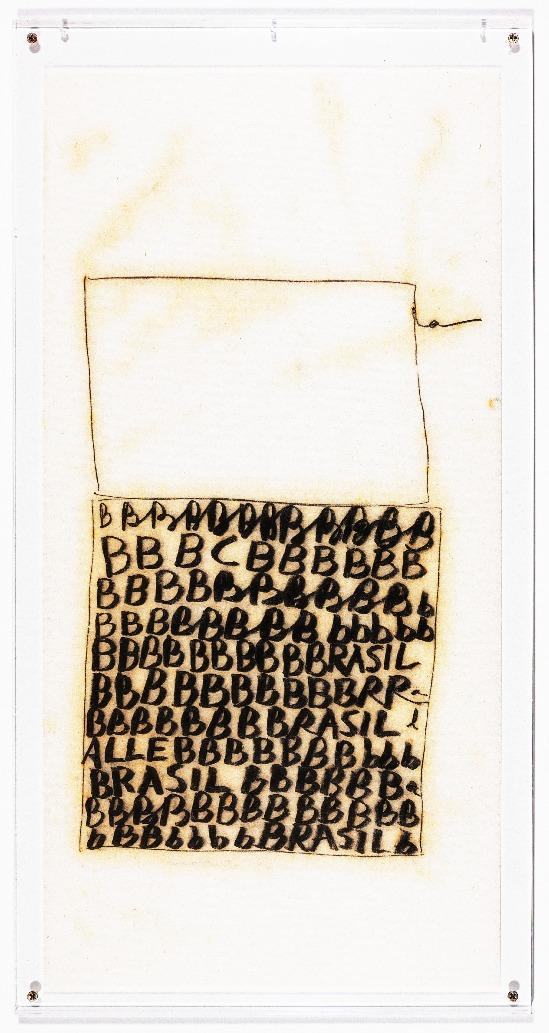 B B B A B B A B B B B B B
B B B C B B B B B B
B B B B B B B B B B B b
B B B B B B B B b b b b b
B B B B B B B B B BRASIL
B B B B B B B B B B B R R
B B B B B B B B BRASIL l
ALLE B B B B B B B b b b
BRASIL B B B B B B a
B B B B B B B B B B B B B
b B B b b b b BRASIL b